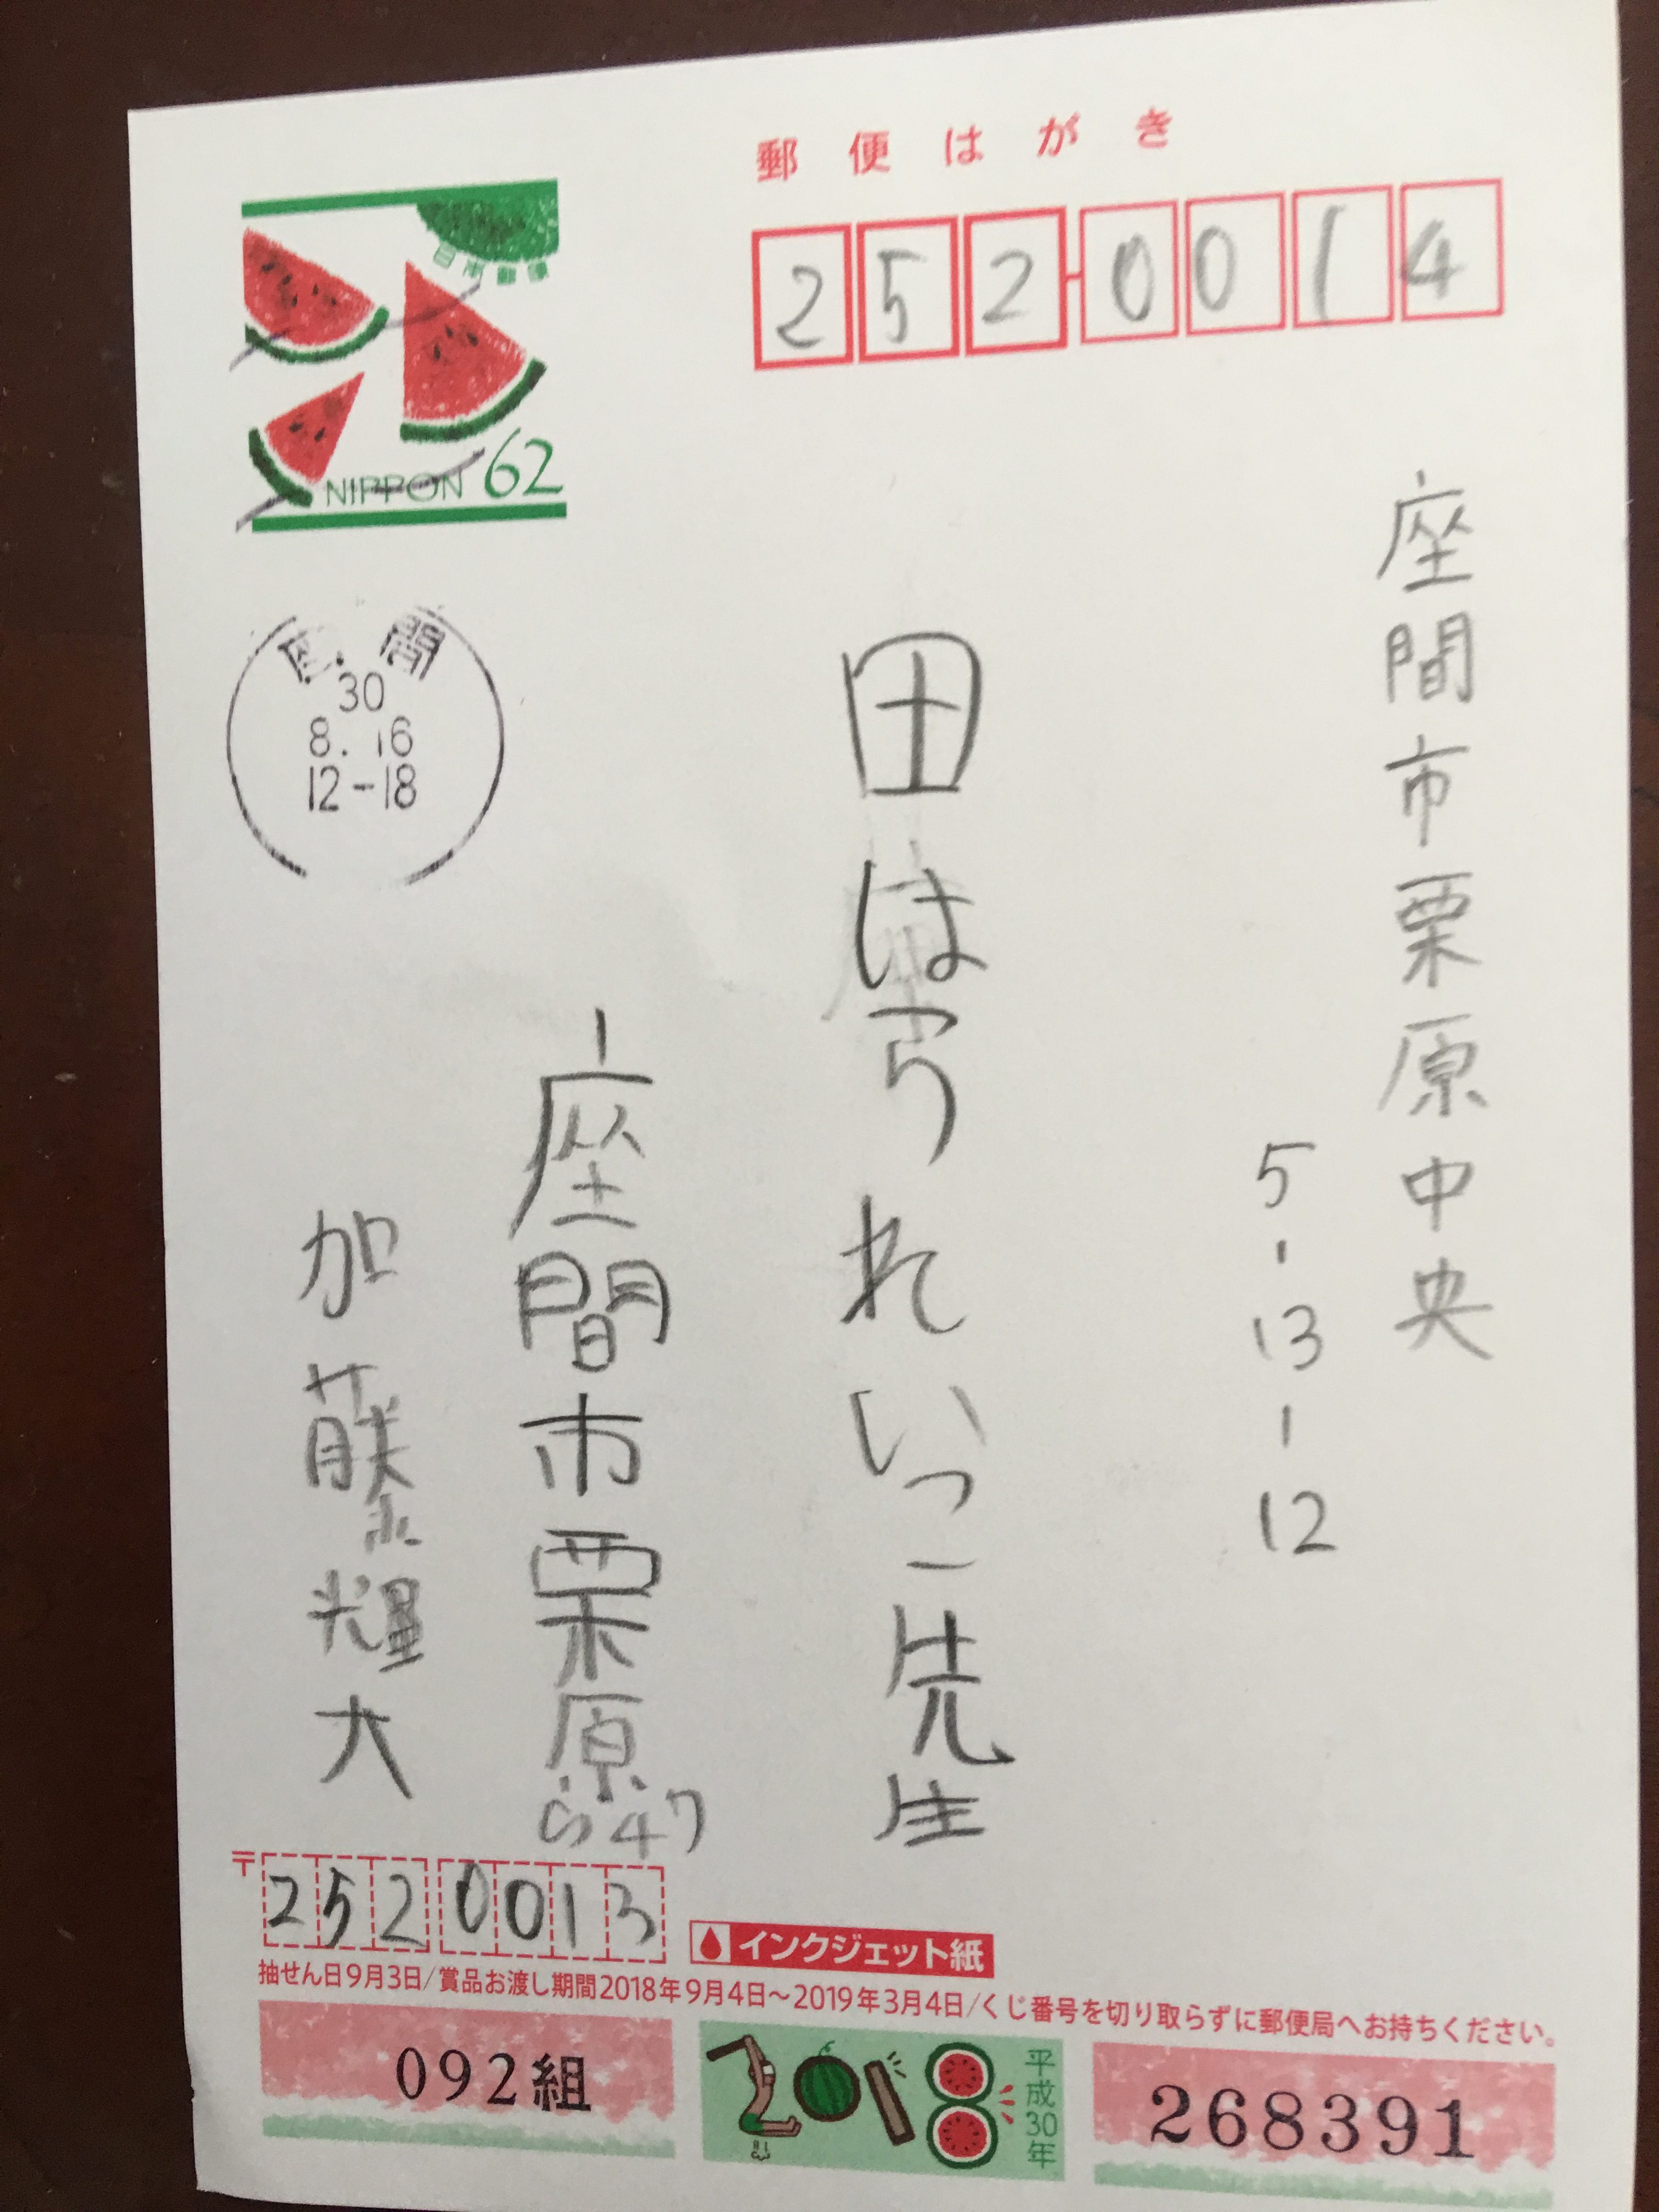 郵便はがき
2520014
日本郵便
NIPPON 62
座間
30
8.16
12-18
座間市栗原中央
5-13-12
田はられいこ先生
座間市栗原
547
加藤輝大
〒2520013
インクジェット紙
抽せん日9月3日/賞品お渡し期間2018年9月4日～2019年3月4日/くじ番号を切り取らずに郵便局へお持ちください。
092組
2018
平成30年
268391